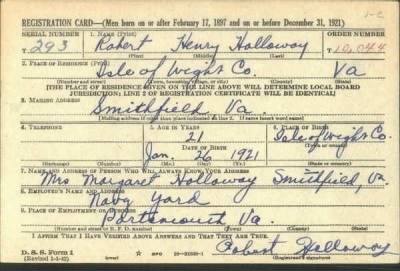 1-2
REGISTRATION CARD—(Men born on or after February 17, 1897 and on or before December 31, 1921)
SERIAL NUMBER 1. NAME (Print) ORDER NUMBER
T 293 Robert Henry Holloway T10,044
(First) (Middle) (Last)
2. PLACE OF RESIDENCE (Print)
Isle of Wight Co. Va
(Number and street) (Town, township, village, or city) (County) (State)
[THE PLACE OF RESIDENCE GIVEN ON THE LINE ABOVE WILL DETERMINE LOCAL BOARD
JURISDICTION; LINE 2 OF REGISTRATION CERTIFICATE WILL BE IDENTICAL]
3. MAILING ADDRESS
Smithfield Va.
[Mailing address if other than place indicated on line 2. If same insert word same]
4. TELEPHONE 5. AGE IN YEARS 6. PLACE OF BIRTH
21 Isle of Wight Co.
DATE OF BIRTH (Town or county)
Jan. 26 1921 Va.
(Exchange) (Number) (Mo.) (Day) (Yr.) (State or country)
7. NAME AND ADDRESS OF PERSON WHO WILL ALWAYS KNOW YOUR ADDRESS
Mrs Margaret Holloway Smithfield, Va.
8. EMPLOYER'S NAME AND ADDRESS
Navy Yard
9. PLACE OF EMPLOYMENT OR BUSINESS
Portsmouth Va.
(Number and street or R. F. D. number) (Town) (County) (State)
I AFFIRM THAT I HAVE VERIFIED ABOVE ANSWERS AND THAT THEY ARE TRUE.
D. S. S. Form 1
(Revised 1-1-42) GPO Robert Holloway
(Registrant's signature)